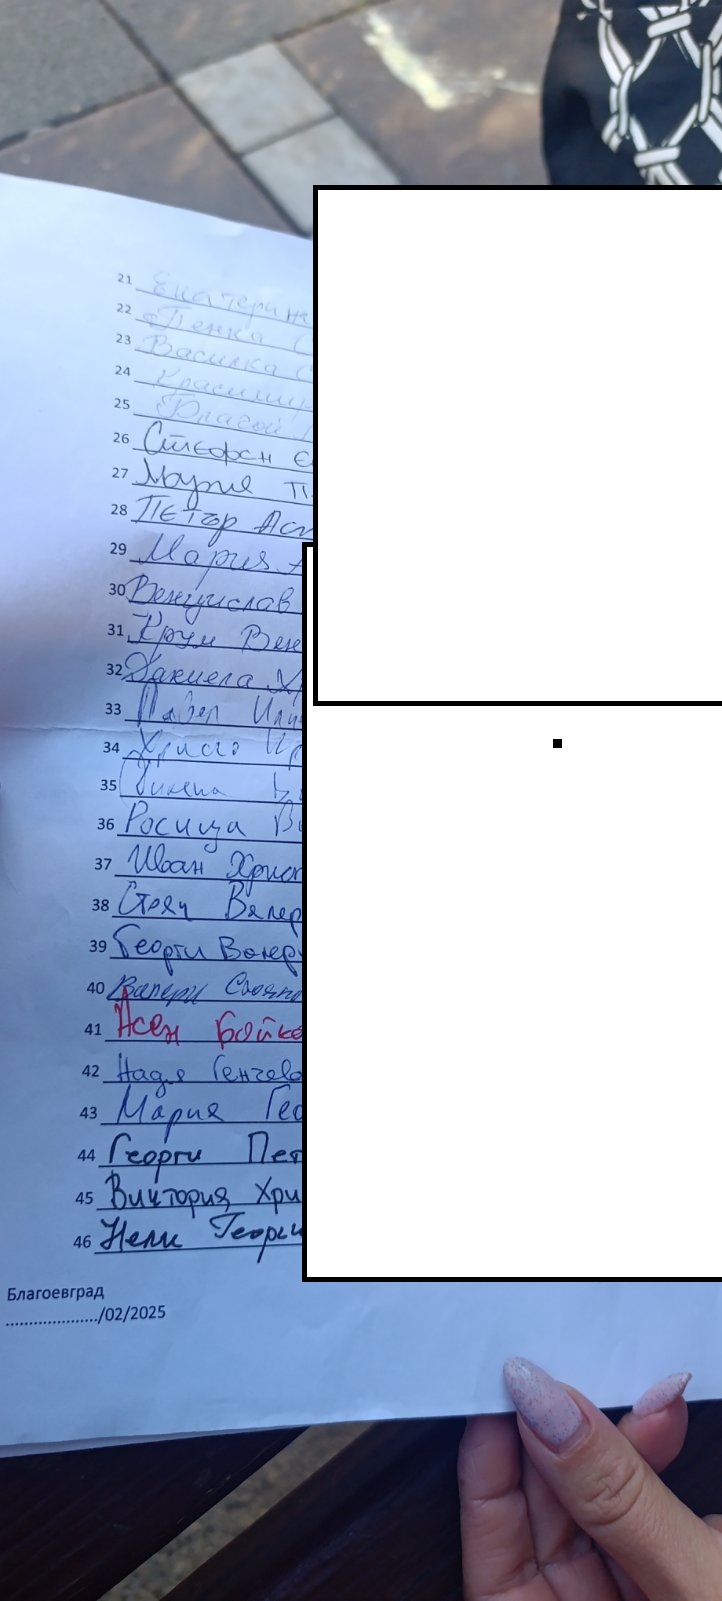 21 Екатерина
22 Пенка
23 Василка
24 Красимир
25 Благой
26 Стефан
27 Мария
28 Петър
29 Мария
30 Венцислав
31 Крум Вен
32 Даниела
33 Павел
34 Христо
35
36 Росица
37 Иван Христ
38 Стоян Валер
39 Георги Валер
40 Валери Стояно
41 Асен Бойко
42 Надя Генчева
43 Мария Гео
44 Георги Пет
45 Виктория Хри
46 Нели Георги
Благоевград
..................../02/2025